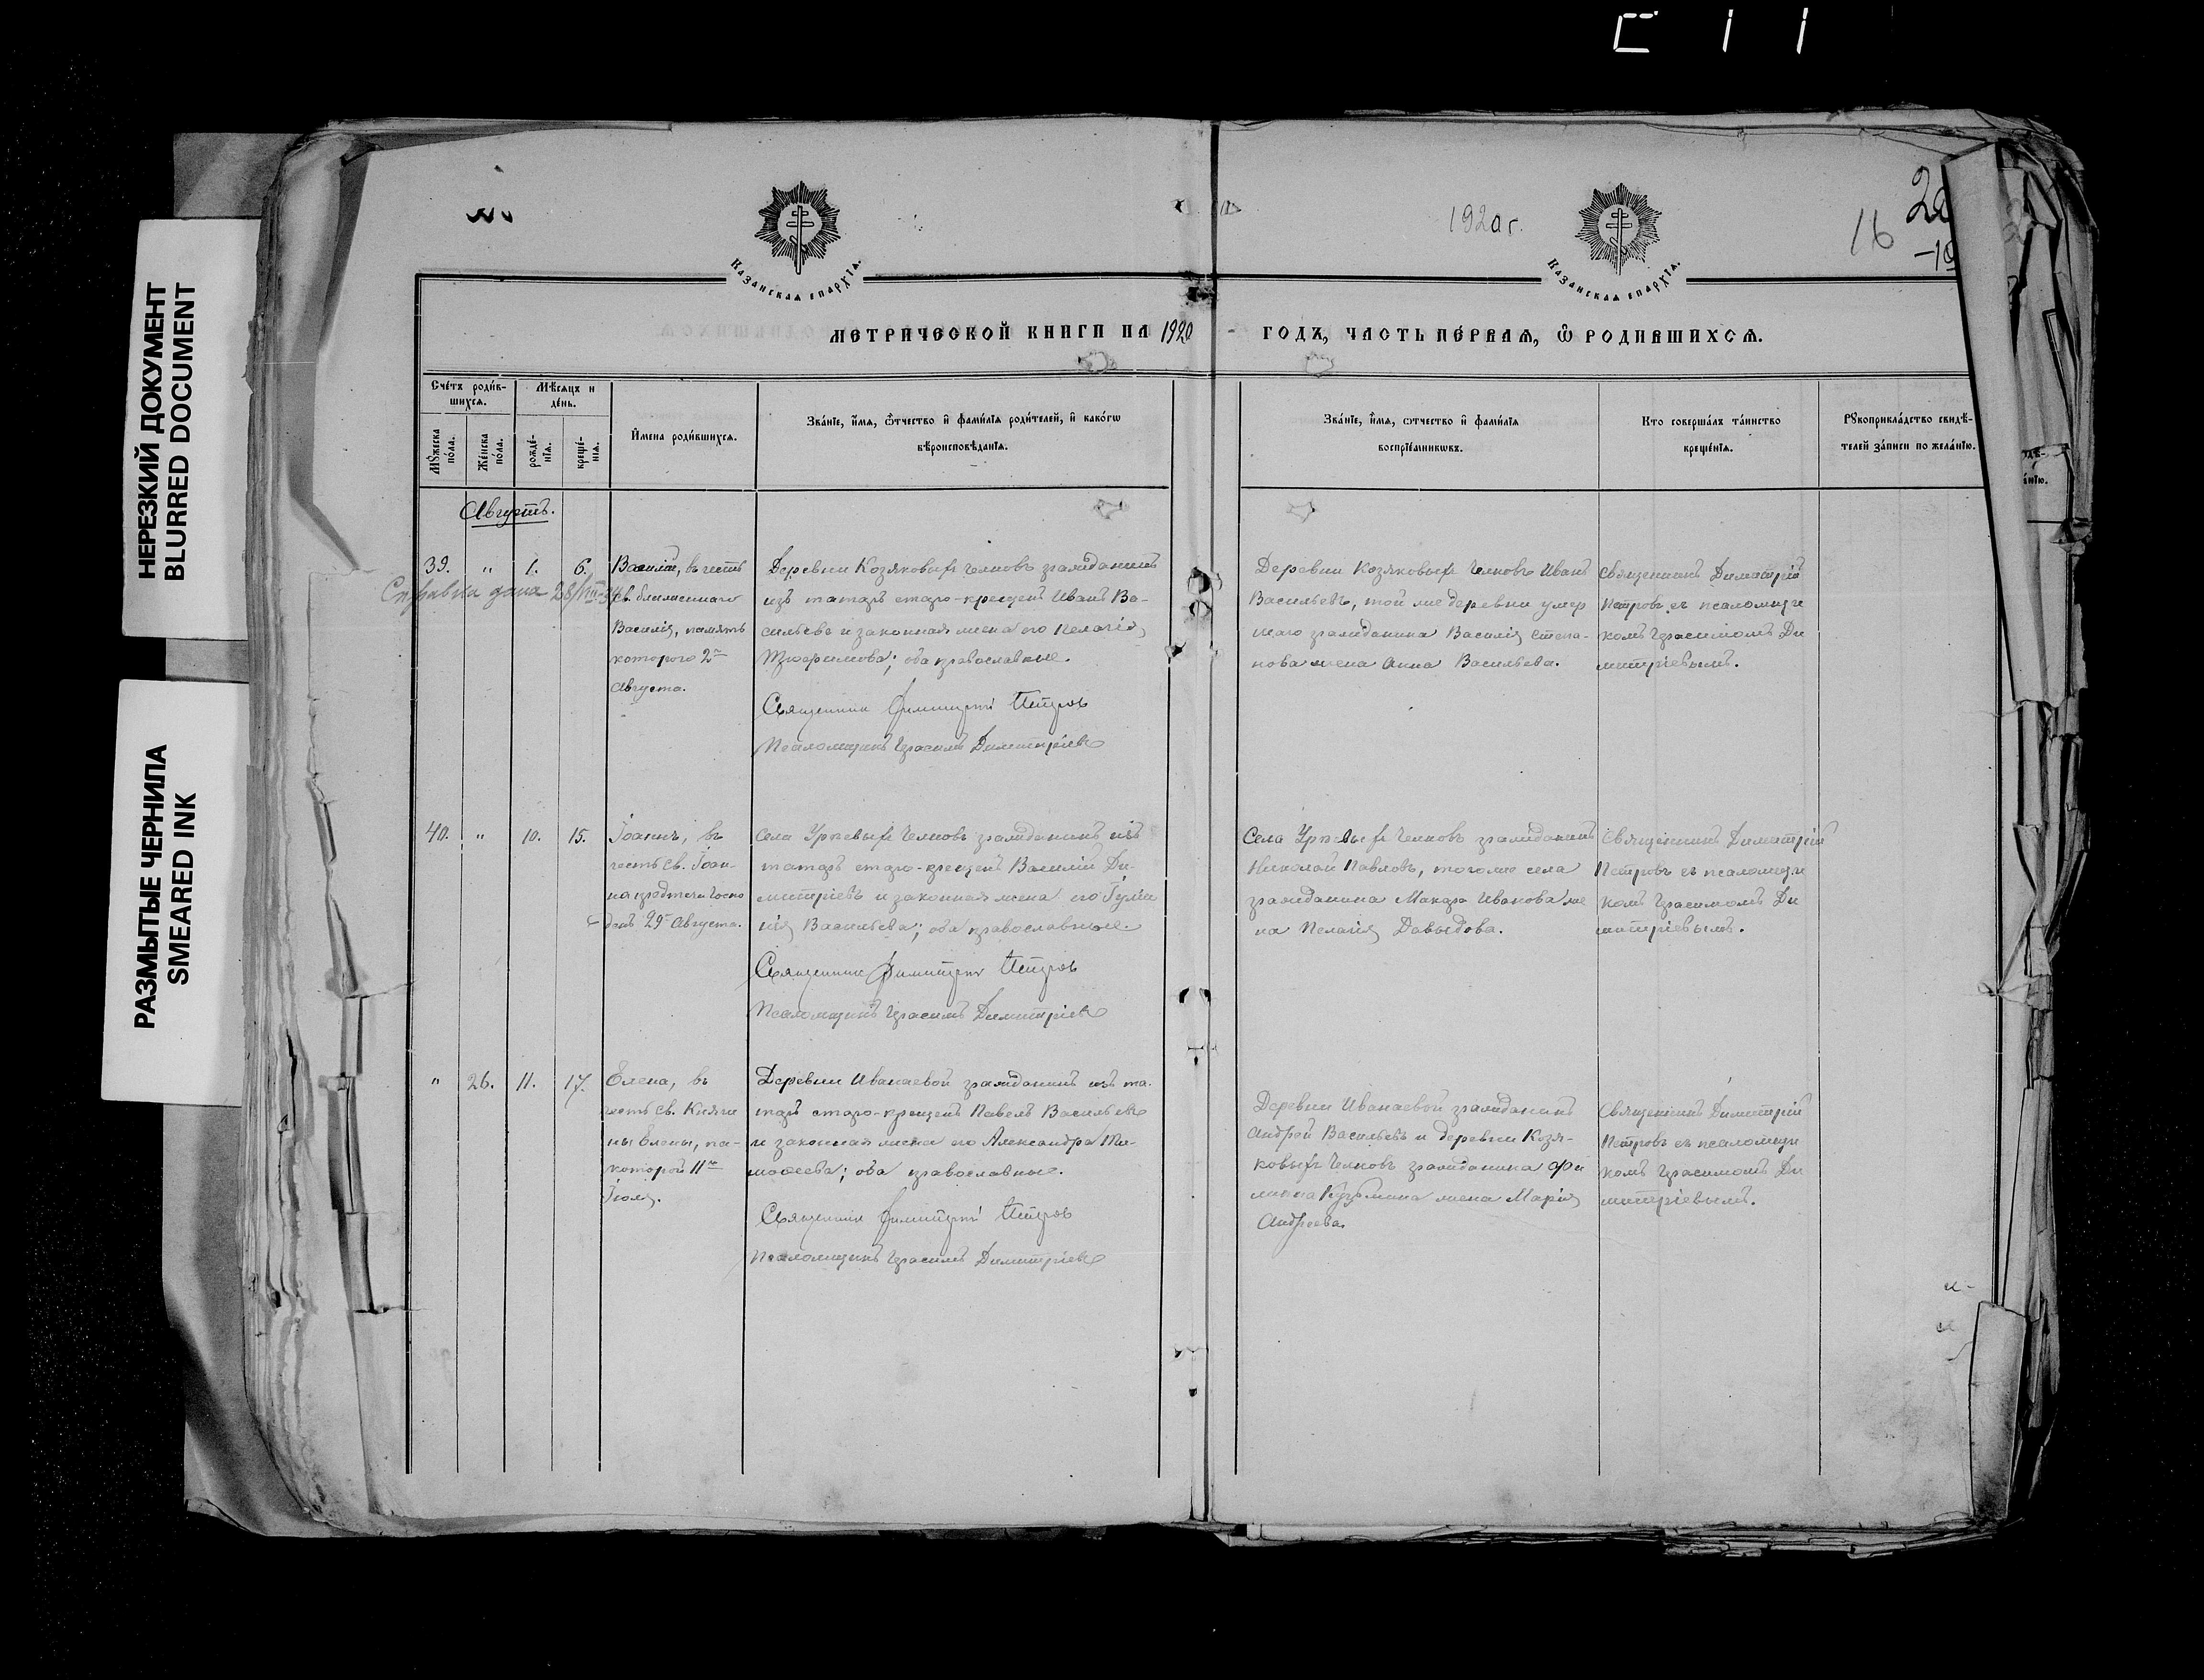 НЕРЕЗКИЙ ДОКУМЕНТ
BLURRED DOCUMENT
РАЗМЫТЫЕ ЧЕРНИЛА
SMEARED INK
1920 г.
16
Казанская епархїѧ.
Казанская епархїѧ.
МЕТРИЧЕСКОЙ КНИГИ НА 1920
ГОДЪ, ЧАСТЬ ПЕ́РВАѦ, Ѿ РОДИВШИХСѦ.
Счéтъ роди́в-
шихсѧ.
Мꙋжеска
по́ла.
Же́нска
по́ла.
Мѣ́сѧцъ и
де́нь.
рожде́-
нїѧ.
креще́-
нїѧ.
И҆мена роди́вшихсѧ.
Зва́нїе, и҆́мѧ, ѻ҆́тчество и҆ фами́лїѧ роди́телей, и҆ како́гѡ
вѣроисповѣ́данїѧ.
Зва́нїе, и҆́мѧ, ѻ҆тчество и҆ фами́лїѧ
воспрїе́мникѡвъ.
Кто соверша́лъ та́инство
креще́нїѧ.
Рꙋкоприкла́дство свидѣ́-
телей за́писи по жела́нїю.
Августъ.
39. " 1. 6.
Справка дана 28/VIII-
Василій, въ честь
св. блаженнаго
Василія, память
котораго 2го
Августа.
Деревни Козяковыхъ Челновъ гражданинъ
изъ татаръ старо-крещенъ Иванъ Ва-
сильевъ и законная жена его Пелагія
Трофимова; оба православные.
Священникъ Димитрій Петровъ
Псаломщикъ Герасимъ Димитріевъ
Деревни Козяковыхъ Челновъ Иванъ
Васильевъ, той же деревни умер
шаго гражданина Василія Степа-
нова жена Анна Васильева.
Священникъ Димитрій
Петровъ съ псаломщи
комъ Герасимомъ Ди
митріевымъ.
40. " 10. 15.
Іоаннъ, въ
честь св. Іоан-
на предтечи Госпо
дня 29го Августа.
Села Уркевыхъ Челновъ гражданинъ изъ
татаръ старо-крещенъ Василій Ди-
митріевъ и законная жена его Іулі
нія Васильева; оба православные.
Священникъ Димитрій Петровъ
Псаломщикъ Герасимъ Димитріевъ
Села Уркевыхъ Челновъ гражданинъ
Николай Павловъ, того же села
гражданина Макара Иванова же
на Пелагія Давыдова.
Священникъ Димитрій
Петровъ съ псаломщи
комъ Герасимомъ Ди
митріевымъ.
" 26. 11. 17.
Елена, въ
честь св. Княги
ни Елены, па-
которой 11го
Іюля.
Деревни Иванаевой гражданинъ изъ та-
таръ старо-крещенъ Павелъ Васильевъ
и законная жена его Александра Ти-
моѳеева; оба православные.
Священникъ Димитрій Петровъ
Псаломщикъ Герасимъ Димитріевъ
Деревни Иванаевой гражданинъ
Андрей Васильевъ и деревни Козя-
ковыхъ Челновъ гражданина Фи
липпа Кузьмина жена Марія
Андреева.
Священникъ Димитрій
Петровъ съ псаломщи
комъ Герасимомъ Ди
митріевымъ.